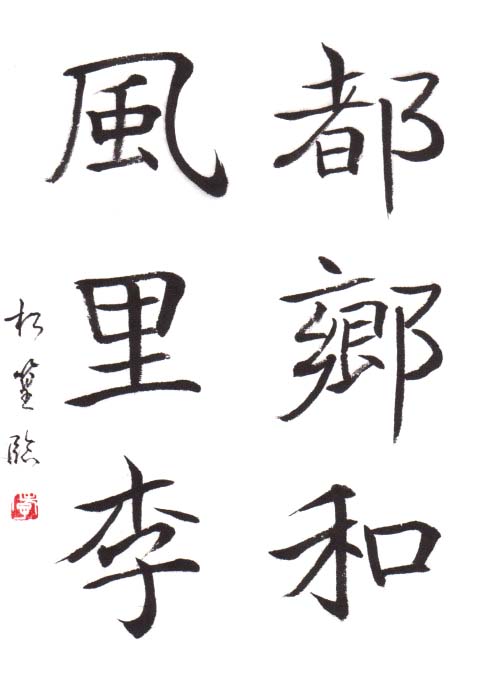 都鄉和
風里李
臨